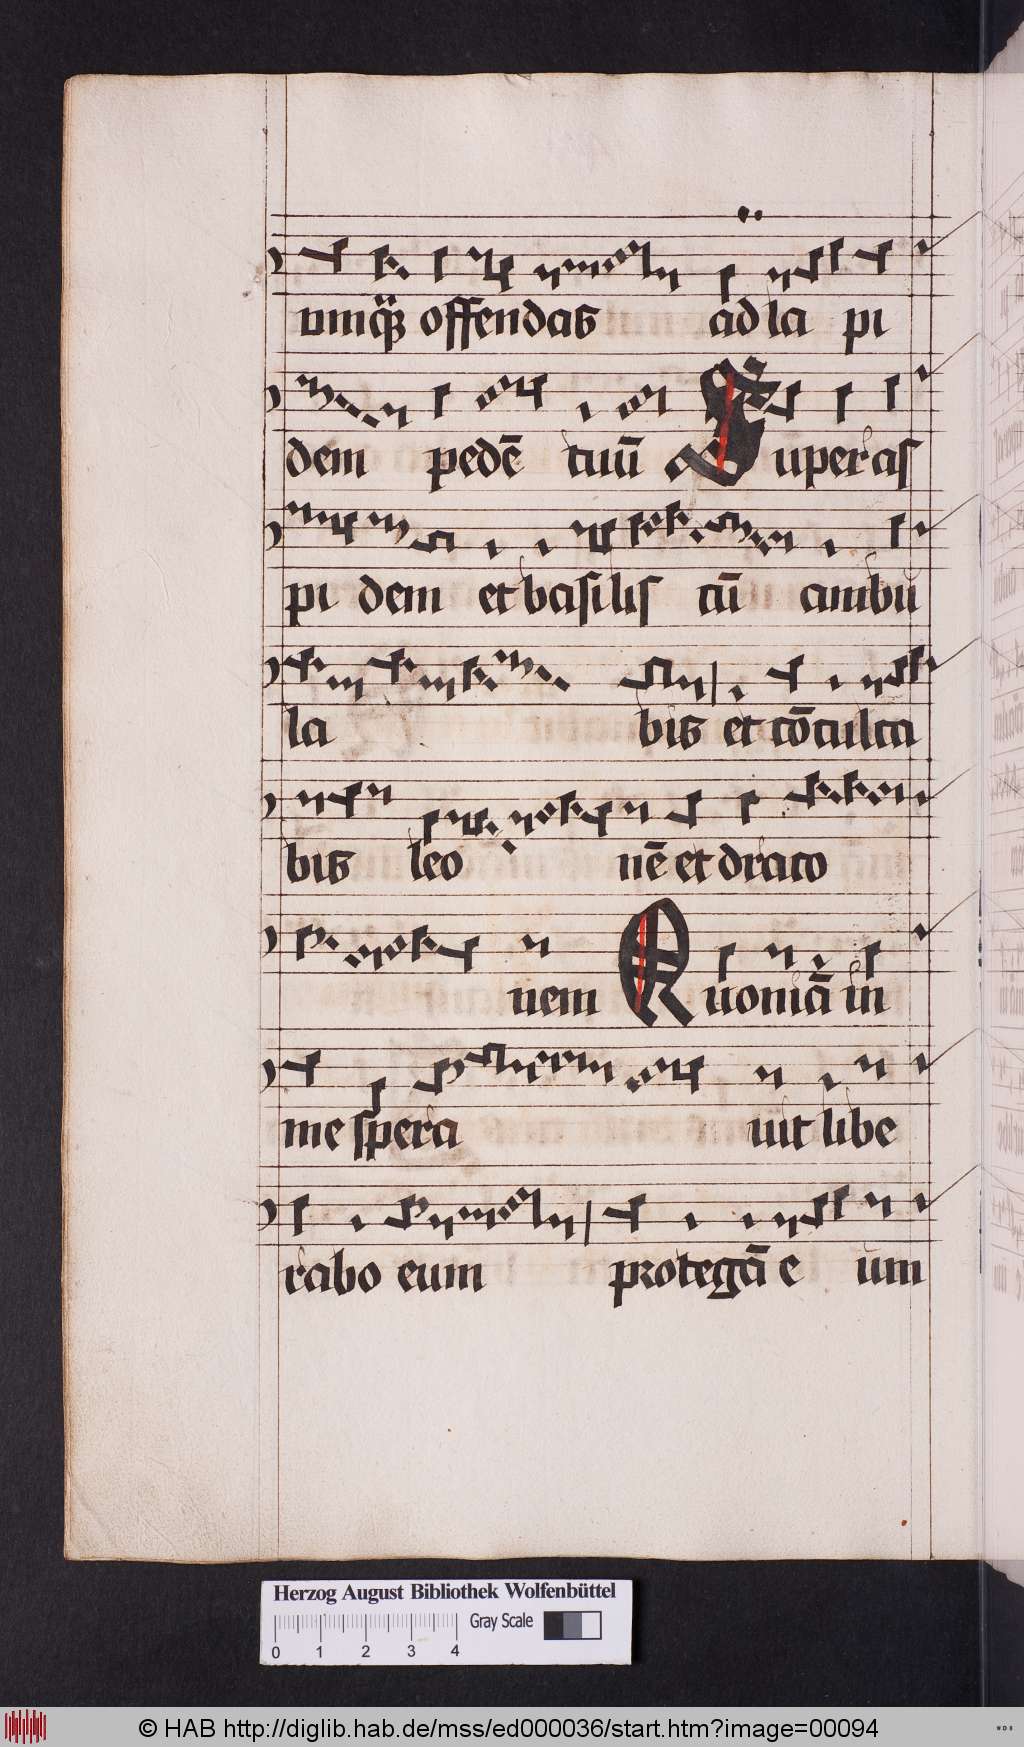 umq̃ꝫ offendas ad la pi
dem pedē tuū Super as
pi dem et basilis cū ambu
la bis et cōculca
bis leo nē et draco
nem Quoniā in
me spera uit libe
rabo eum protegā e um
Herzog August Bibliothek Wolfenbüttel
Gray Scale
0 1 2 3 4
© HAB http://diglib.hab.de/mss/ed000036/start.htm?image=00094